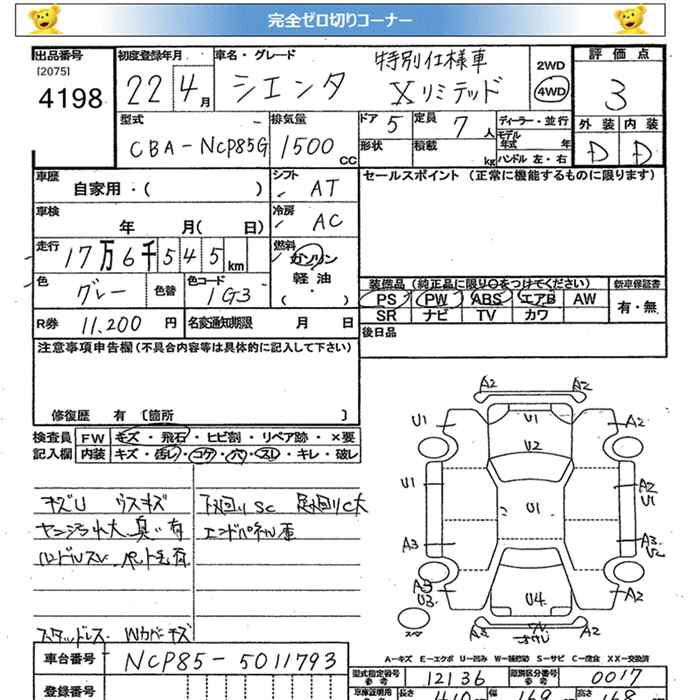 完全ゼロ切りコーナー
出品番号 初度登録年月 車名・グレード 評価点
[2075]
4198 22年 4月 シエンタ 特別仕様車 Xリミテッド 2WD 4WD 3
型式 排気量 ドア 定員 ディーラー・並行 外装 内装
CBA-NCP85G 1500CC 5 7人 モデル年式 年 D D
形状 積載 kg ハンドル 左・右
車歴 シフト セールスポイント(正常に機能するものに限ります)
自家用・( ) AT
車検 冷房
年 月( 日) AC
走行 燃料
17万6千545km ガソリン
軽油
( ・ )
色 色替 色コード 装備品(純正品に限り○をつけてください) 新車保証書
グレー 1G3 PS PW ABS エアB AW 有・無
R券 11,200円 名変通知期限 月 日 SR ナビ TV カワ
後日品
注意事項申告欄(不具合内容等は具体的に記入して下さい)
修復歴 有 〔箇所 〕
検査員 FW キズ・飛石・ヒビ割・リペア跡・×要
記入欄 内装 キズ・汚レ・コゲ・穴・スレ・キレ・破レ
キズU ウスキズ 下回りSC 足回りC大
ヤニ汚れ大 臭い有 エンドパネル歪
ハンドルスレ ペット毛有
スタッドレス Wカバーキズ
A2 A2
U1 U1 A2
U2
U1 U1 A2
U1
A3 A3
A3
U3 U4 A2
A2 A2
スペア
A-キズ E-エクボ U-凹み W-補修跡 S-サビ C-腐食 XX-交換済
車台番号 NCP85-5011793 型式指定番号 参考 12136 類別区分番号 参考 0017
登録番号 車庫証明用 参考 長さ 410 幅 169 高さ 168